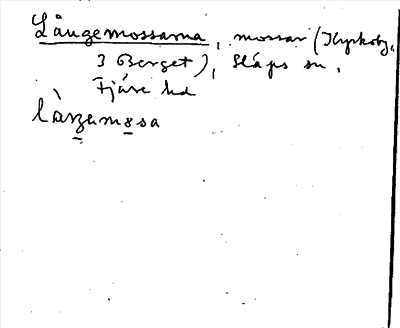 Långemossarna, mossar (Kyrkoby,
3 Berget), Släps sn,
Fjäre hd
làŋzemosa